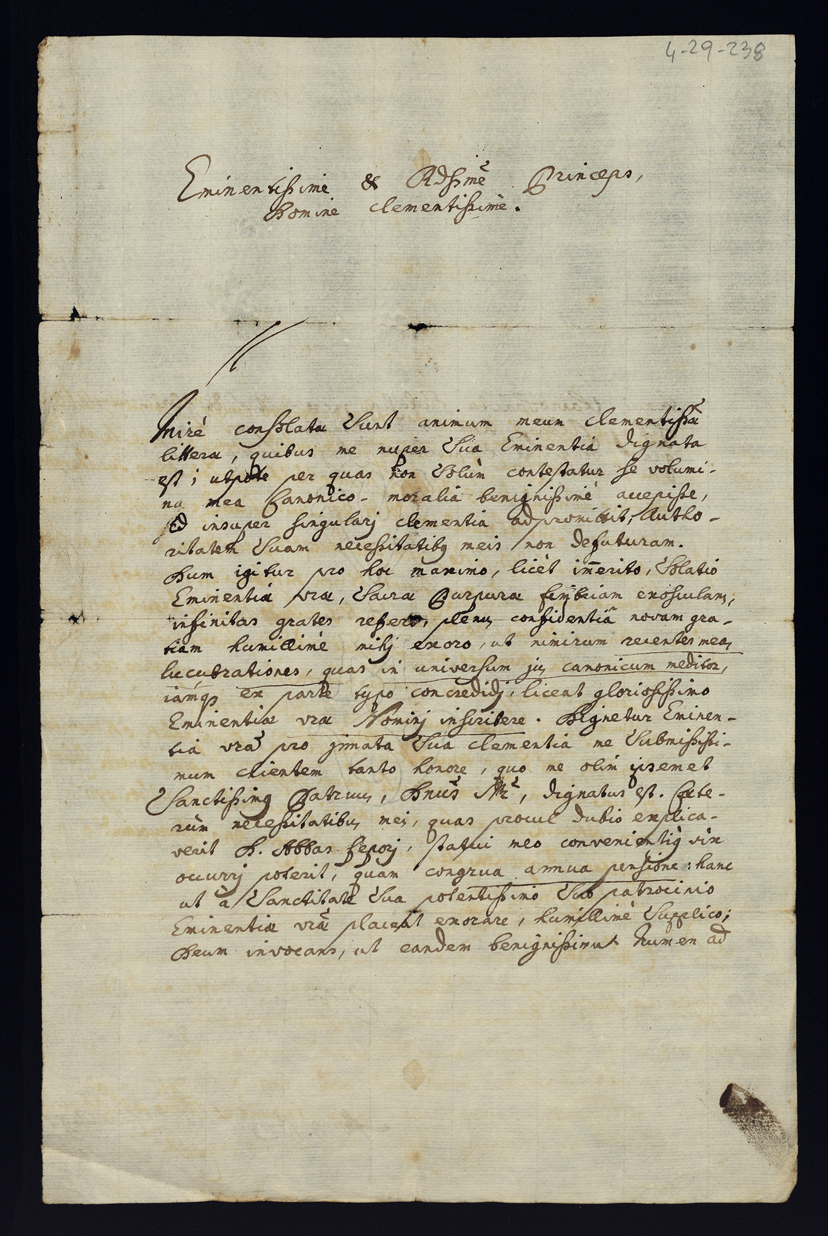 4-29-238
Eminentissime & Rdssme Princeps,
Domine clementissime.
Mirè consolatæ sunt animum meum clementissæ
litteræ, quibus me nuper Sua Eminentia dignata
est; utpote per quas non solùm contestatur se volumi-
na mea Canonico-moralia benignissimè accepisse,
sed insuper singularj clementia adpromittit, Autho-
ritatem suam necessitatibq meis non defuturam.
Dum igitur pro hoc maximo, licèt im̄erito, solatio
Eminentiæ vræ, Sacræ Purpuræ fimbriam exosculans,
infinitas grates refero, plenus confidentiâ novam gra-
tiam humillimè mihj exoro, ut nimirum recentes meas
lucubrationes, quas in universum jus canonicum meditor,
iamqȝ ex parte typo concredidj, liceat gloriosissimo
Eminentiæ vræ Nominj inscribere. Dignetur Eminen-
tia vra pro innata sua clementia me submississi-
mum clientem tanto honore, quo me olim ipsemet
Sanctissimq Patruus, Dnus Nr, dignatus est. Cæte-
rùm necessitatibus meis, quas procul dubio explica-
verit D. Abbas Leporj, statui meo convenientiq vix
occurrj poterit, quam congrua annua pensione: hanc
ut à Sanctitate sua potentissimo suo patrocinio
Eminentiæ vræ placeat exorare, humillimè supplico;
Deum invocans, ut eandem benignissimum Numen ad